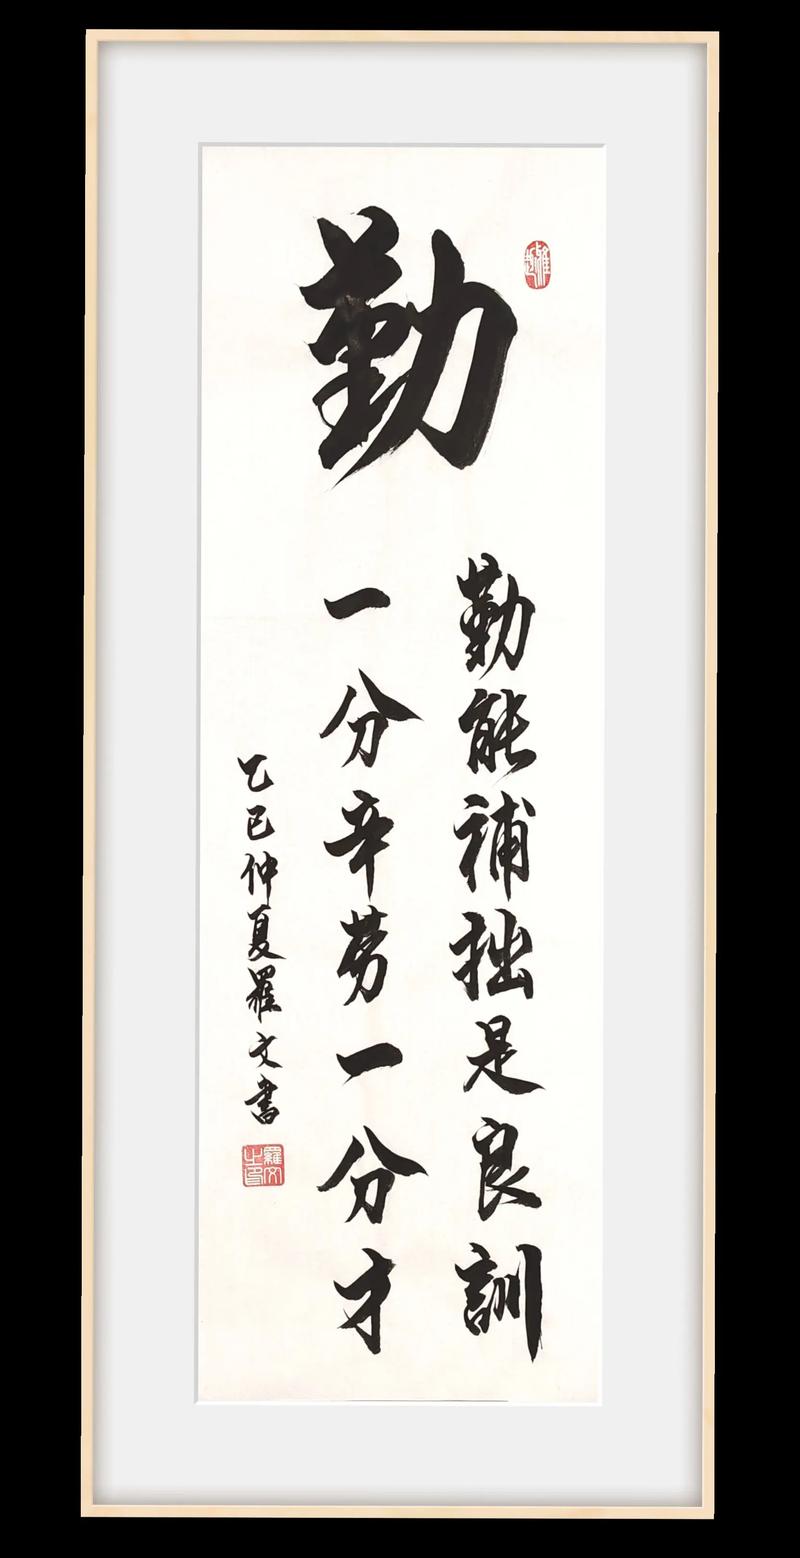 勤
勤能補拙是良訓
一分辛劳一分才
乙巳仲夏羅文書
羅文之印